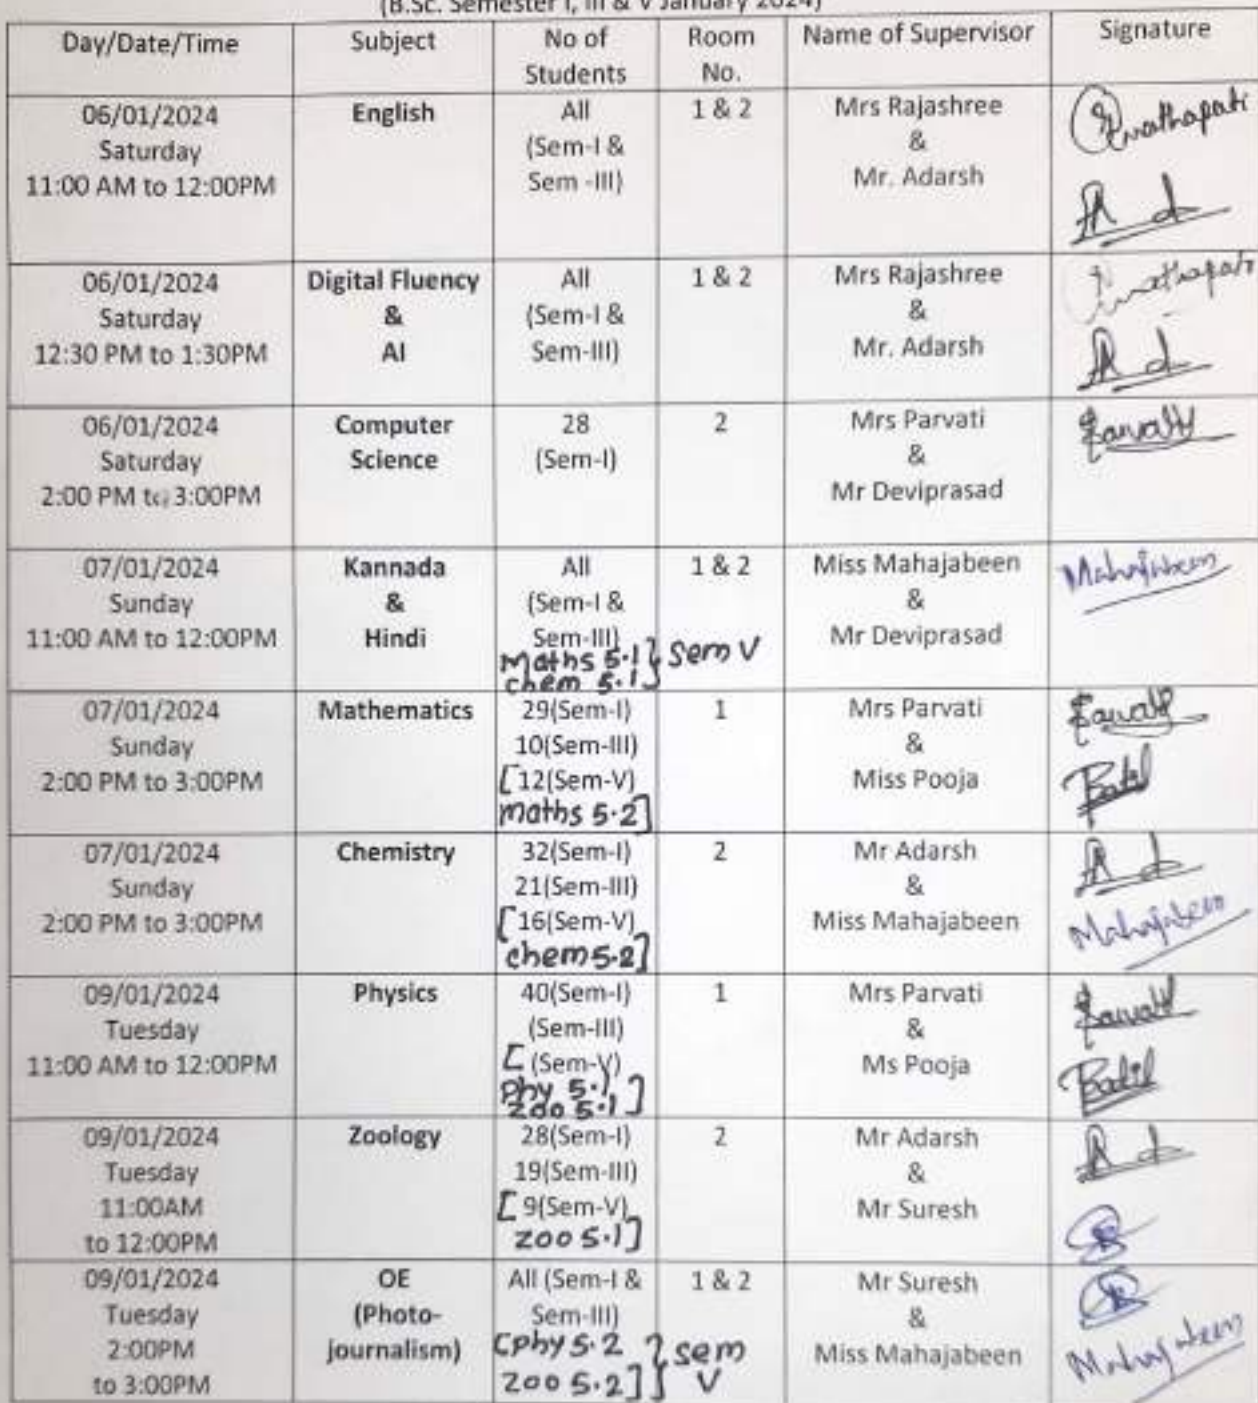 (B.Sc. Semester I, III & V January 2024)
Day/Date/Time Subject No of Students Room No. Name of Supervisor Signature
06/01/2024 Saturday 11:00 AM to 12:00PM English All (Sem-I & Sem -III) 1 & 2 Mrs Rajashree & Mr. Adarsh
06/01/2024 Saturday 12:30 PM to 1:30PM Digital Fluency & AI All (Sem-I & Sem-III) 1 & 2 Mrs Rajashree & Mr. Adarsh
06/01/2024 Saturday 2:00 PM to 3:00PM Computer Science 28 (Sem-I) 2 Mrs Parvati & Mr Deviprasad
07/01/2024 Sunday 11:00 AM to 12:00PM Kannada & Hindi All (Sem-I & Sem-III) Maths 5.1 chem 5.1 } Sem V 1 & 2 Miss Mahajabeen & Mr Deviprasad Mahajabeen
07/01/2024 Sunday 2:00 PM to 3:00PM Mathematics 29(Sem-I) 10(Sem-III) [12(Sem-V) maths 5.2] 1 Mrs Parvati & Miss Pooja
07/01/2024 Sunday 2:00 PM to 3:00PM Chemistry 32(Sem-I) 21(Sem-III) [16(Sem-V) chem 5.2] 2 Mr Adarsh & Miss Mahajabeen Mahajabeen
09/01/2024 Tuesday 11:00 AM to 12:00PM Physics 40(Sem-I) (Sem-III) [(Sem-V) phy 5.1 zoo 5.1] 1 Mrs Parvati & Ms Pooja
09/01/2024 Tuesday 11:00AM to 12:00PM Zoology 28(Sem-I) 19(Sem-III) [9(Sem-V) zoo 5.1] 2 Mr Adarsh & Mr Suresh
09/01/2024 Tuesday 2:00PM to 3:00PM OE (Photo-journalism) All (Sem-I & Sem-III) [phy 5.2 zoo 5.2] } sem V 1 & 2 Mr Suresh & Miss Mahajabeen Mahajabeen